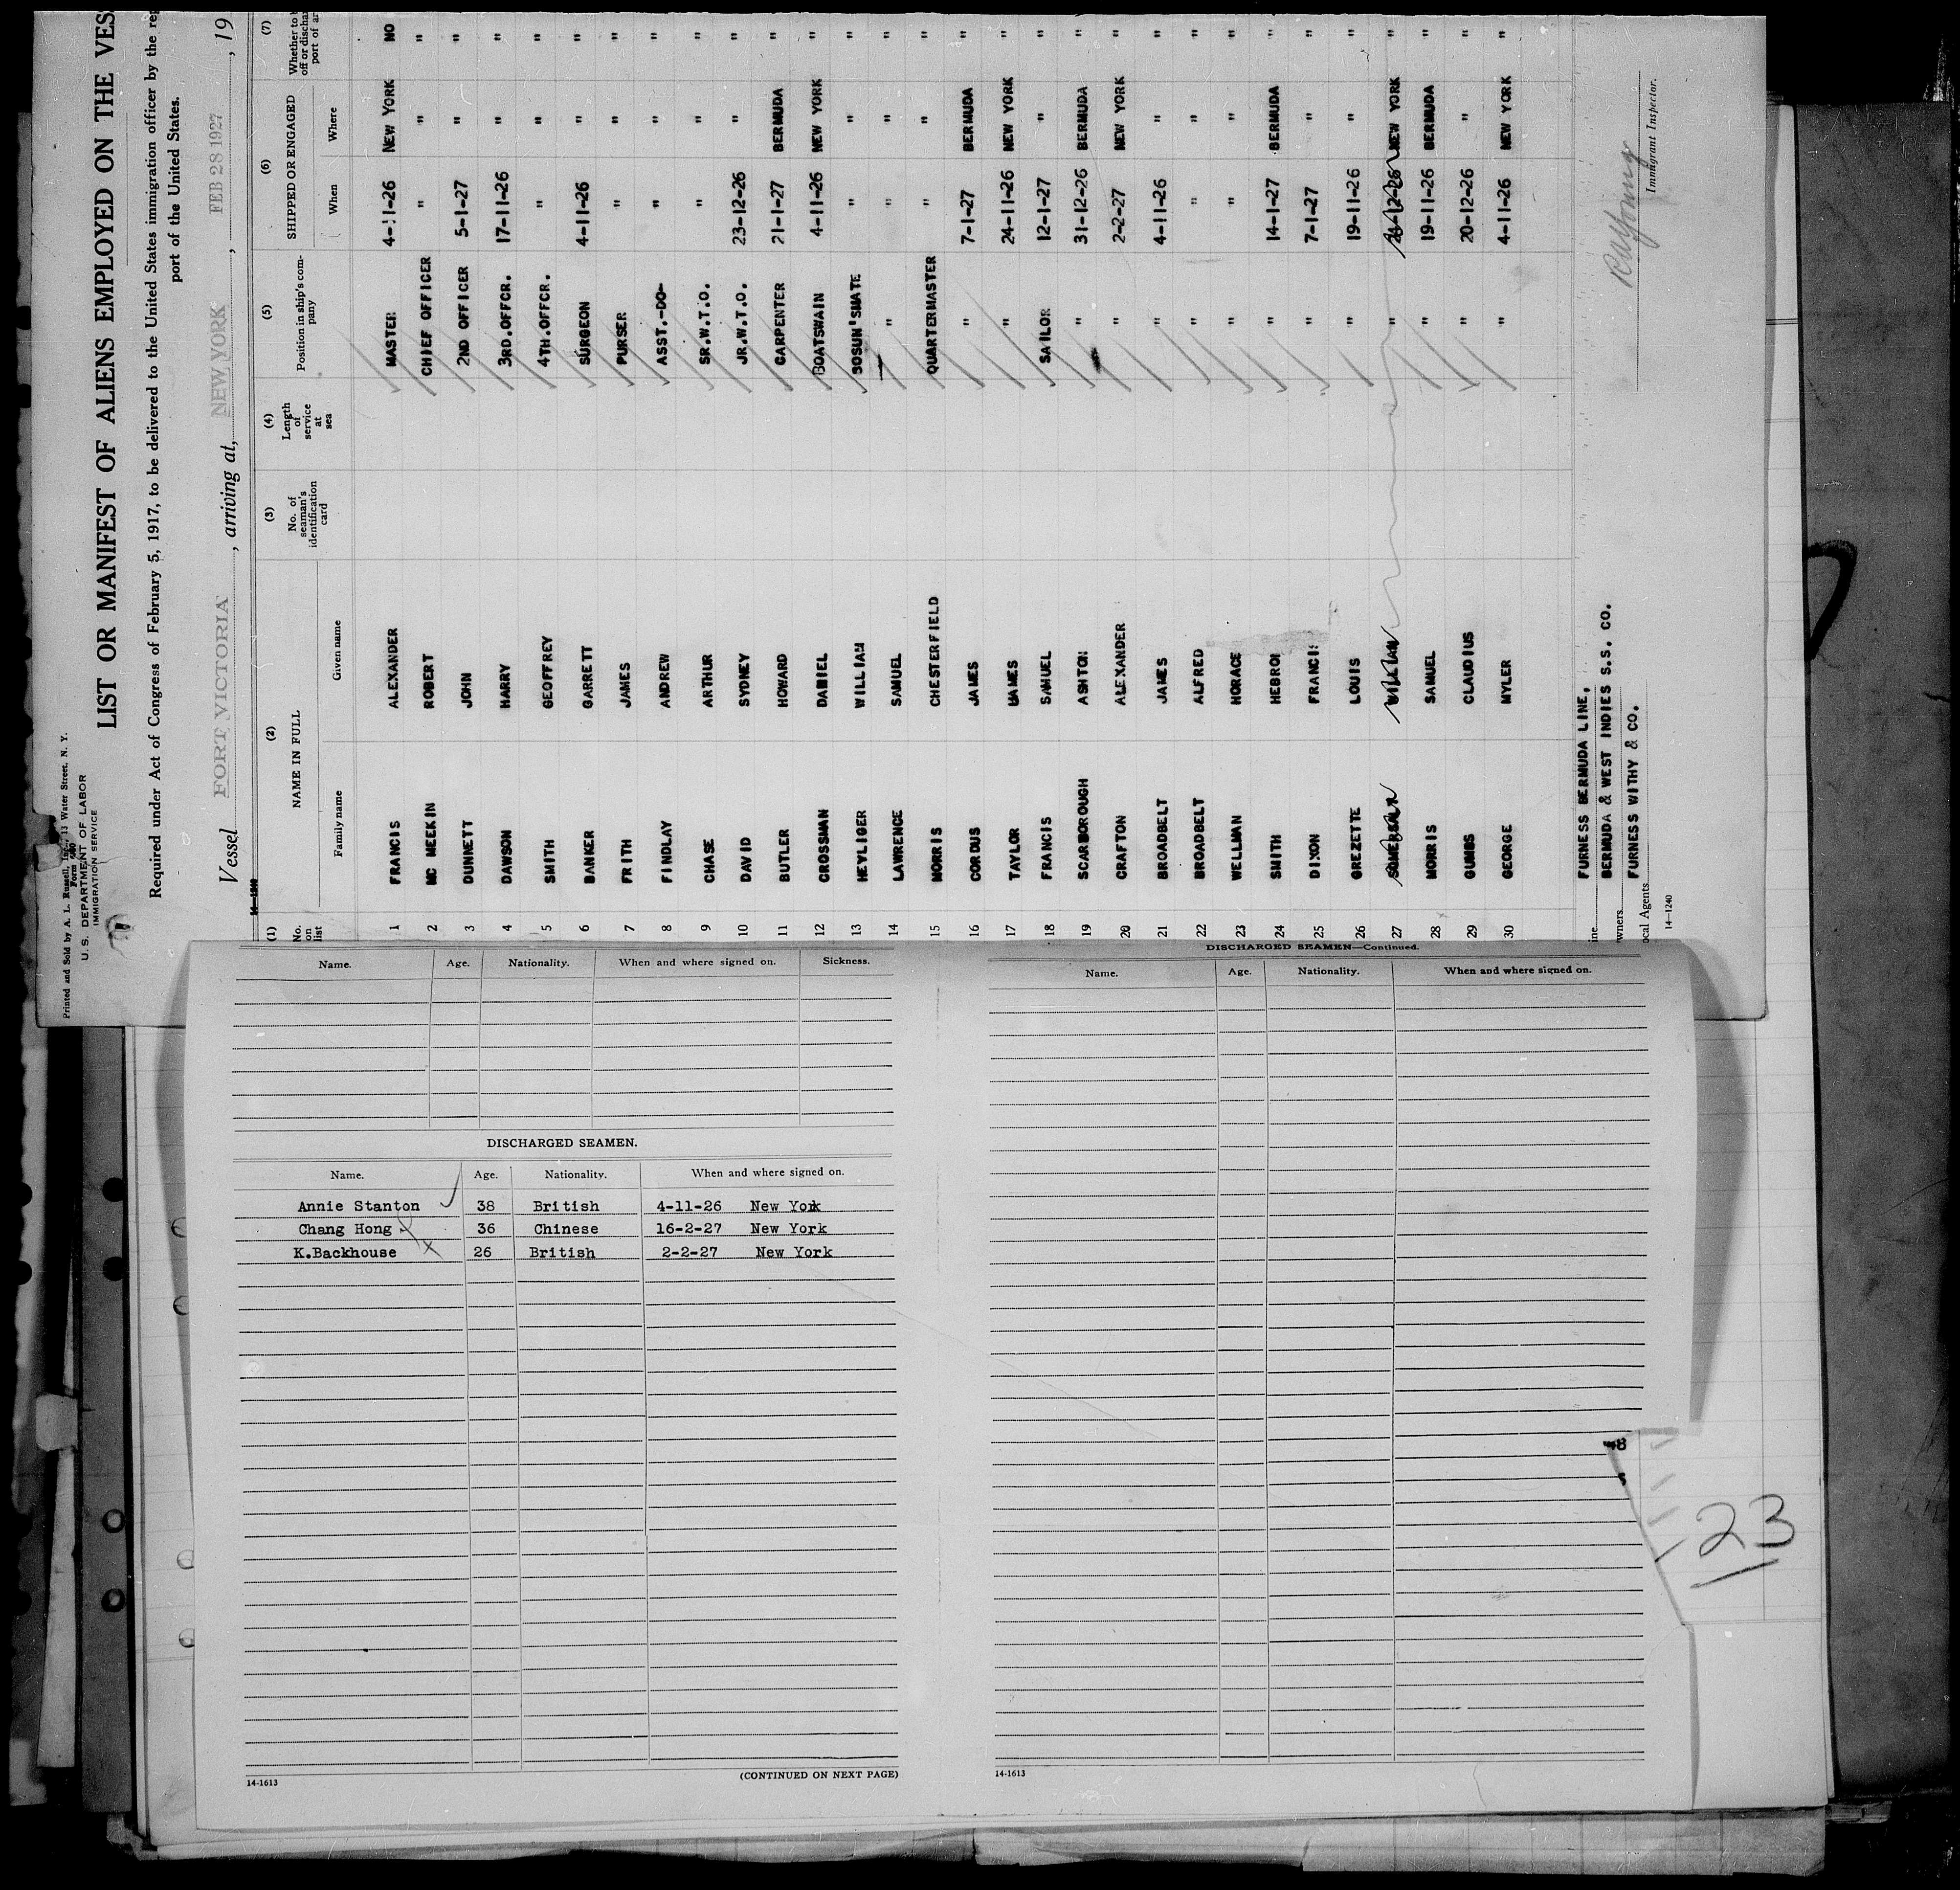 Printed and Sold by A. L. Russell, Inc., 13 Water Street, N. Y.
Form 680
U. S. DEPARTMENT OF LABOR
IMMIGRATION SERVICE
LIST OR MANIFEST OF ALIENS EMPLOYED ON THE VES
Required under Act of Congress of February 5, 1917, to be delivered to the United States immigration officer by the re
port of the United States.
Vessel FORT VICTORIA, arriving at, NEW YORK, FEB 28 1927, 19
14-1240
(1) (2) (3) (4) (5) (6) (7)
No. on list NAME IN FULL No. of seaman's identification card Length of service at sea Position in ship's company SHIPPED OR ENGAGED Whether to b off or dischar port of ar
Family name Given name When Where
1 FRANCIS ALEXANDER MASTER 4-11-26 NEW YORK NO
2 MC MEEKIN ROBERT CHIEF OFFICER " " "
3 DUNKETT JOHN 2ND OFFICER 5-1-27 " "
4 DAWSON HARRY 3RD.OFFCR. 17-11-26 " "
5 SMITH GEOFFREY 4TH.OFFCR. " " "
6 BANKER GARRETT SURGEON 4-11-26 " "
7 FRITH JAMES PURSER " " "
8 FINDLAY ANDREW ASST.-DO- " " "
9 CHASE ARTHUR SR.W.T.O. " " "
10 DAVID SYDNEY JR.W.T.O. 23-12-26 " "
11 BUTLER HOWARD CARPENTER 21-1-27 BERMUDA "
12 CROSSMAN DANIEL BOATSWAIN 4-11-26 NEW YORK "
13 HEYLIGER WILLIAM BOSUN'SMATE " " "
14 LAWRENCE SAMUEL " " " "
15 MORRIS CHESTERFIELD QUARTERMASTER " " "
16 CORDUS JAMES " 7-1-27 BERMUDA "
17 TAYLOR JAMES " 24-11-26 NEW YORK "
18 FRANCIS SAMUEL SAILOR 12-1-27 " "
19 SCARBOROUGH ASHTON " 31-12-26 BERMUDA "
20 CRAFTON ALEXANDER " 2-2-27 NEW YORK "
21 BROADBELT JAMES " 4-11-26 " "
22 BROADBELT ALFRED " " " "
23 WELLMAN HORACE " " "
24 SMITH HEBRON " 14-1-27 BERMUDA "
25 DIXON FRANCIS " 7-1-27 " "
26 GREZETTE LOUIS " 19-11-26 " "
27 WILLIAM " NEW YORK "
28 MORRIS SAMUEL " 19-11-26 BERMUDA "
29 GUMBS CLAUDIUS " 20-12-26 " "
30 GEORGE MYLER " 4-11-26 NEW YORK "
ine FURNESS BERMUDA LINE,
wners BERMUDA & WEST INDIES S.S. CO.
ocal Agents FURNESS WITHY & CO.
Immigrant Inspector.
14-1240
Name. Age. Nationality. When and where signed on. Sickness.
DISCHARGED SEAMEN.
Name. Age. Nationality. When and where signed on.
Annie Stanton 38 British 4-11-26 New York
Chang Hong 36 Chinese 16-2-27 New York
K.Backhouse 26 British 2-2-27 New York
14-1613
(CONTINUED ON NEXT PAGE)
DISCHARGED SEAMEN—Continued.
Name. Age. Nationality. When and where signed on.
14-1613
23